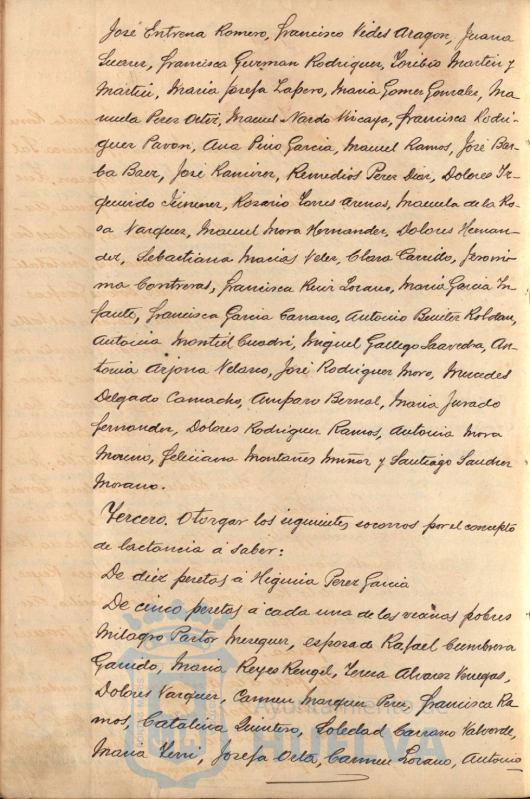 José Entrena Romero, Francisco Vides Aragon, Juana
Suarez, Francisca Guzman Rodriguez, Toribio Martin y
Martin, Maria Josefa Zapero, Maria Gomez Gonzalez, Ma-
nuela Perez Ortiz, Manuel Nardo Vizcaya, Francisca Rodri-
guez Pavon, Ana Pino Garcia, Manuel Ramos, José Bar-
ba Baez, José Ramirez, Remedios Perez Diaz, Dolores Iz-
quierdo Jimenez, Rosario Torres Arenas, Manuela de la Ro-
sa Vazquez, Manuel Mora Hernandez, Dolores Hernan-
dez, Sebastiana Macias Velez, Clara Garrido, Jeroni-
ma Contreras, Francisca Ruiz Lozano, Maria Garcia In-
fante, Francisca Garcia Carrano, Antonio Benitez Roldan,
Antonia Montiel Cuadri, Miguel Gallego Saavedra, An-
tonia Arjona Velasco, José Rodriguez Moro, Mercedes
Delgado Camacho, Amparo Bernal, Maria Jurado
Fernandez, Dolores Rodriguez Ramos, Antonia Mora
Moreno, Feliciana Montañes Muñoz y Santiago Sanchez
Morano.
Tercero. Otorgar los siguientes socorros por el concepto
de lactancia á saber:
De diez pesetas á Higinia Perez Garcia
De cinco pesetas á cada una de las vecinas pobres
Milagro Pastor Meseguer, esposa de Rafael Cumbrera
Garrido, Maria Reyes Rengel, Teresa Alvarez Venegas,
Dolores Vazquez, Carmen Marquez Perez, Francisca Ra-
mos, Catalina Quintero, Soledad Carrano Valverde,
Maria Josefa Orta, Carmen Lozano, Antonio
Ayuntamiento de
HUELVA